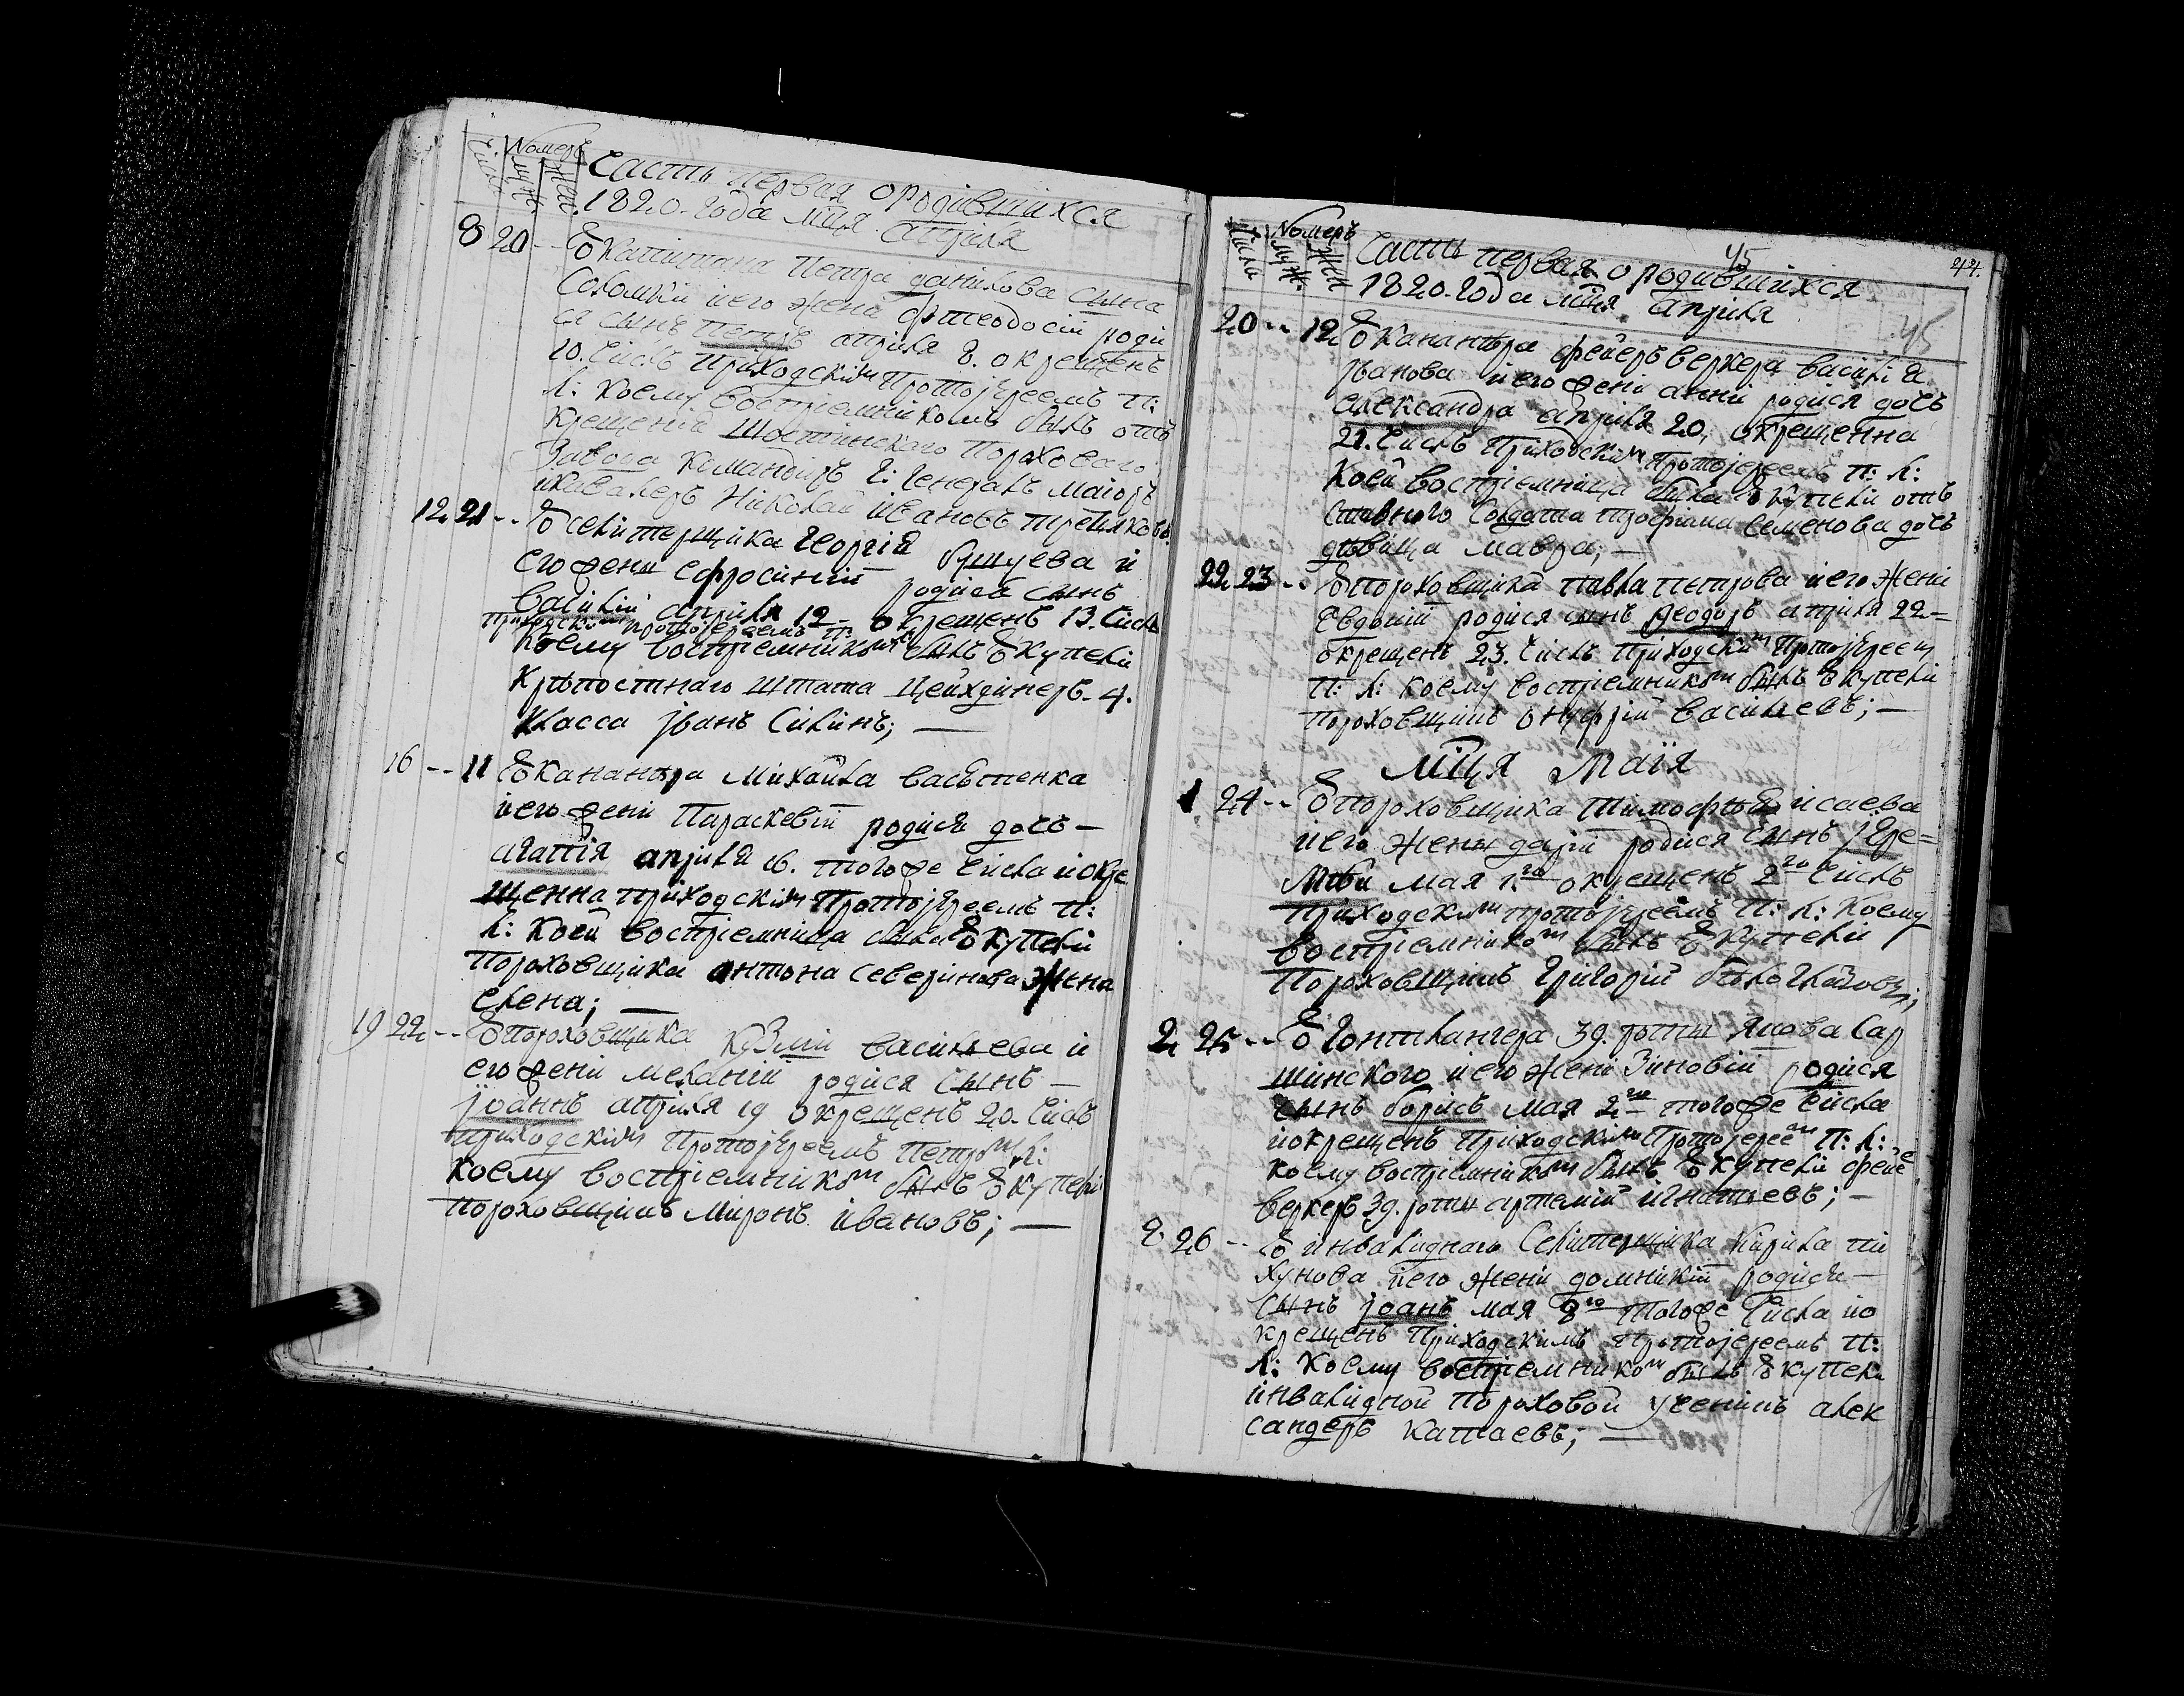 Числа
Номеръ
муж.
жен.
Часть первая о родившихся
1820. Года мца Априля
8 20 -- У капитана Петра данилова сына
Соломки и его жена Фтеодосіи роди
ся сынъ Петръ априля 8. окрещенъ
10. Числъ Приходскимъ Протоіереемъ П:
Л: коему воспріемникомъ былъ отъ
крещенія Шостинского Порохового
Завода Командиръ Г: Генералъ Маіоръ
икавалеръ Николай Ивановъ Третяковъ.
12 21 -- У селитерщика Георгія Бушуева и
его жены Ефросиніи родися сынъ
василій априля 12 - окрещенъ 13. Числ
приходскимъ протоіереемъ П:
коему воспріемникомъ былъ У купели
Крѣпостнаго штата Цейхдинеръ. 4.
Класса Іванъ Силинъ; —
16 -- 11 У Канантра Михайла васѣтенка
и его жени Параскевіи родися дочь —
агапія априля 16. того же Числа иокре
щенна приходскимъ Протоіереемъ П:
Л: коей воспріемница была У купели
Пороховщика антона северинова жена
елена; —
19 22 -- У Пороховщика кузми васильева и
его жени меланіи родися сынъ —
Іоаннъ априля 19 окрещенъ 20. Числъ
приходскимъ Протоіереемъ Петромъ Л:
коему воспріемникомъ былъ У купели
Пороховщикъ Миронъ ивановъ; —
45
44.
Числа
Номеръ
муж.
жен
Часть первая о родившихся
1820. Года мца Априля
45
20 -- 12 У Канантра фейерверкера василія
Іванова и его жени анни родися дочь
александра априля 20, окрещенна
21. Числъ Приходскимъ Протоіереемъ П: Л:
коей воспріемница была У купели отъ
ставного Солдата трофима Семенова дочь
дѣвица мавра; —
22 23 -- У пороховщика павла петрова и его жени
Евдокіи родися сынъ Феодоръ априля 22 -
окрещенъ 23. Числъ Приходскимъ Протоіереем
П: Л: коему воспріемникомъ былъ У купели
пороховщикъ онуфрій васильевъ; —
Мца Маія
1 24 -- У пороховщика тимофѣя исаева
и его жены даріи родися сынъ Іере=
мѣй мая 1го окрещенъ 2го Числъ
Приходскимъ протоіереемъ П: Л: коему
воспріемникомъ былъ У купели
Пороховщикъ григорій бѣлоглазовъ;
2 25 -- У Гонтлангера 39. роты Якова Сар
шинского и его жени Зиновіи родися
сынъ борисъ мая 2го того же Числа
иокрещенъ Приходскимъ Протоіереемъ П: Л:
коему воспріемникомъ былъ У купели фейе
веркеръ 39. роты артемій игнатьевъ; —
26 -- У инвалиднаго Селитерщика Кирила пи
хунова и его жени домникіи родися —
сынъ Іоанъ мая 8го того же Числа ио
крещенъ Приходскимъ Протоіереемъ П:
Л: коему воспріемникомъ былъ У купели
инвалидной Пороховой ученикъ алек
сандеръ Катаевъ; —